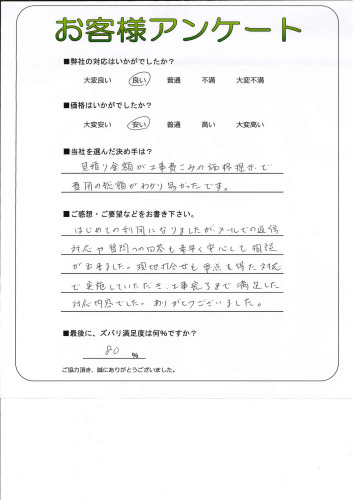 お客様アンケート
■弊社の対応はいかがでしたか?
大変良い 良い 普通 不満 大変不満
■価格はいかがでしたか?
大変安い 安い 普通 高い 大変高い
■当社を選んだ決め手は?
見積り金額が工事費こみの価格提示で
費用の総額がわかり易かったです。
■ご感想・ご要望などをお書き下さい。
はじめての利用になりましたが、メールでの返信
対応や質問への回答も素早く安心して相談
が出来ました。現地打合せも要点を得た対応
で実施していただき、工事完了まで満足した
対応内容でした。ありがとうございました。
■最後に、ズバリ満足度は何%ですか?
80 %
ご協力頂き、誠にありがとうございました。